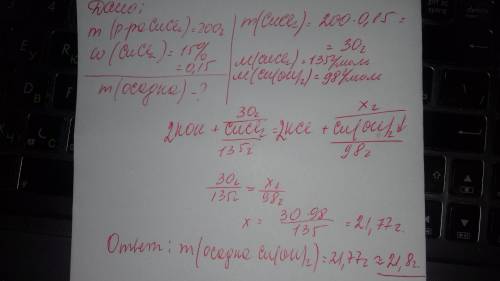 Дано:
m(р-ра CuCl₂)=200г
ω(CuCl₂)=15%
=0,15
m(осадка)-?
m(CuCl₂)=200·0,15=
=30г
M(CuCl₂)=135г/моль
M(Cu(OH)₂)=98г/моль
30г xг
2KOH + CuCl₂ = 2KCl + Cu(OH)₂↓
135г 98г
30г/135г = xг/98г
x = 30·98/135 = 21,77г
Ответ: m(осадка Cu(OH)₂)=21,77г≈21,8г